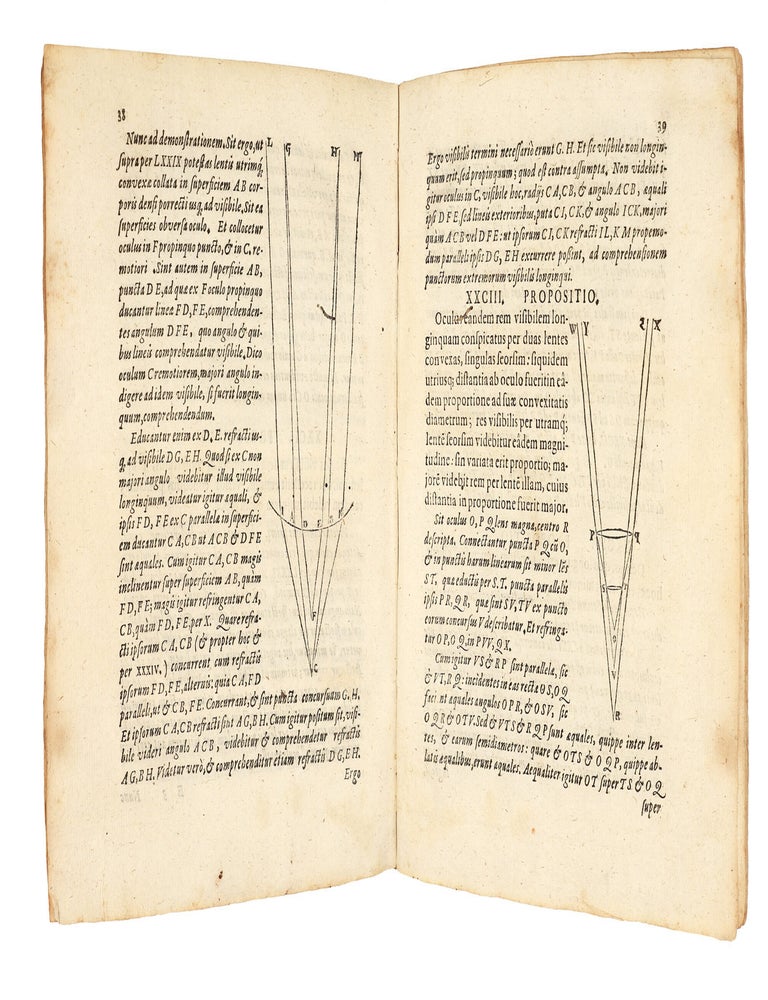 38
Nunc ad demonstrationem. Sit ergo, ut
supra per LXXIX potestas lentis utrimq;
convexæ collata in superficiem AB cor-
poris densi porrecti usq; ad visibile. Sit ea
superficies obversa oculo. Et collocetur
oculus in F propinquo puncto, & in C, re-
motiori. Sint autem in superficie AB,
puncta DE, ad quæ ex F oculo propinquo
ducantur lineæ FD, FE, comprehenden-
tes angulum DFE, quo angulo & qui-
bus lineis comprehendatur visibile. Dico
oculum C remotiorem, majori angulo in-
digere ad idem visibile, si fuerit longin-
quum, comprehendendum.
Educantur enim ex D. E. refracti us-
q; ad visibile DG, EH. Quod si ex C non
majori angulo videbitur illud visibile
longinquum, videatur igitur æquali, &
ipsis FD, FE ex C parallelæ in superfici-
em ducantur CA, CB ut ACB & DFE
sint æquales. Cum igitur CA, CB magis
inclinentur super superficiem AB, quàm
FD, FE; magis igitur refringentur CA,
CB, quàm FD, FE, per X. Quare refra-
cti ipsorum CA, CB (& propter hoc &
per XXXIV.) concurrent cum refractis
ipsorum FD, FE, alternis: quia CA, FD
paralleli, ut & CB, FE: Concurrant, & sint puncta concursuum G. H.
Et ipsorum CA, CB refracti sint AG, BH. Cum igitur positum sit, visi-
bile videri angulo ACB, videbitur & comprehendetur refractis
AG, BH. Videtur verò, & comprehenditur etiam refractis DG, EH.
Ergo
L G H M
I D E K
F
C
39
Ergo visibilis termini necessariò erunt G. H. Et sic visibile non longin-
quum erit, sed propinquum; quod est cintra assumpta. Non videbit i-
gitur oculus in C, visibile hoc, radijs CA, CB, & angulo ACB, æquali
ipsi DFE, sed lineis exterioribus, puta CI, CK, & angulo ICK, majori
quàm ACB vel DFE: ut ipsorum CI, CK refracti IL, KM propemo-
dum paralleli ipsis DG, EH excurrere possint, ad comprehensionem
punctorum extremorum visibilis longinqui.
XXCIII. PROPOSITIO.
Oculus eandem rem visibilem lon-
ginquam conspicatus per duas lentes
convexas, singulas seorsim: siquidem
utriusq; distantia ab oculo fuerit in eâ-
dem proportione ad suæ convexitatis
diametrum; res visibilis per utramq;
lentẽ seorsim videbitur eâdem magni-
tudine: sin variata erit proportio; ma-
jorẽ videbit rem per lentẽ illam, cuius
distantia in proportione fuerit major.
Sit oculus O, P Q lens magna, centro R
descripta. Connectantur puncta P Q cũ O,
& in punctis harum linearum sit minor lẽs
S T, quæ eductis per S. T. punctà parallelis
ipsis PR, QR, quæ sint SV, TV ex puncto
eorum concursus V describatur. Et refringa-
tur OP, OQ in PVV, QX.
Cum igitur VS & RP sint parallela, sic
& VT, RQ: incidentes in eas rectæ OS, OQ
faciẽnt æquales angulos OPR, & OSV, sic
OQR & OTV. Sed & VTS & RQP sunt æquales, quippe inter len-
tes, & earum semidiametros: quare & OTS & OQP, quippe ab-
latis æqualibus, erunt æquales. Aequaliter igitur OT super TS & OQ
super
W Y Z X
P Q
S T
O
V
R